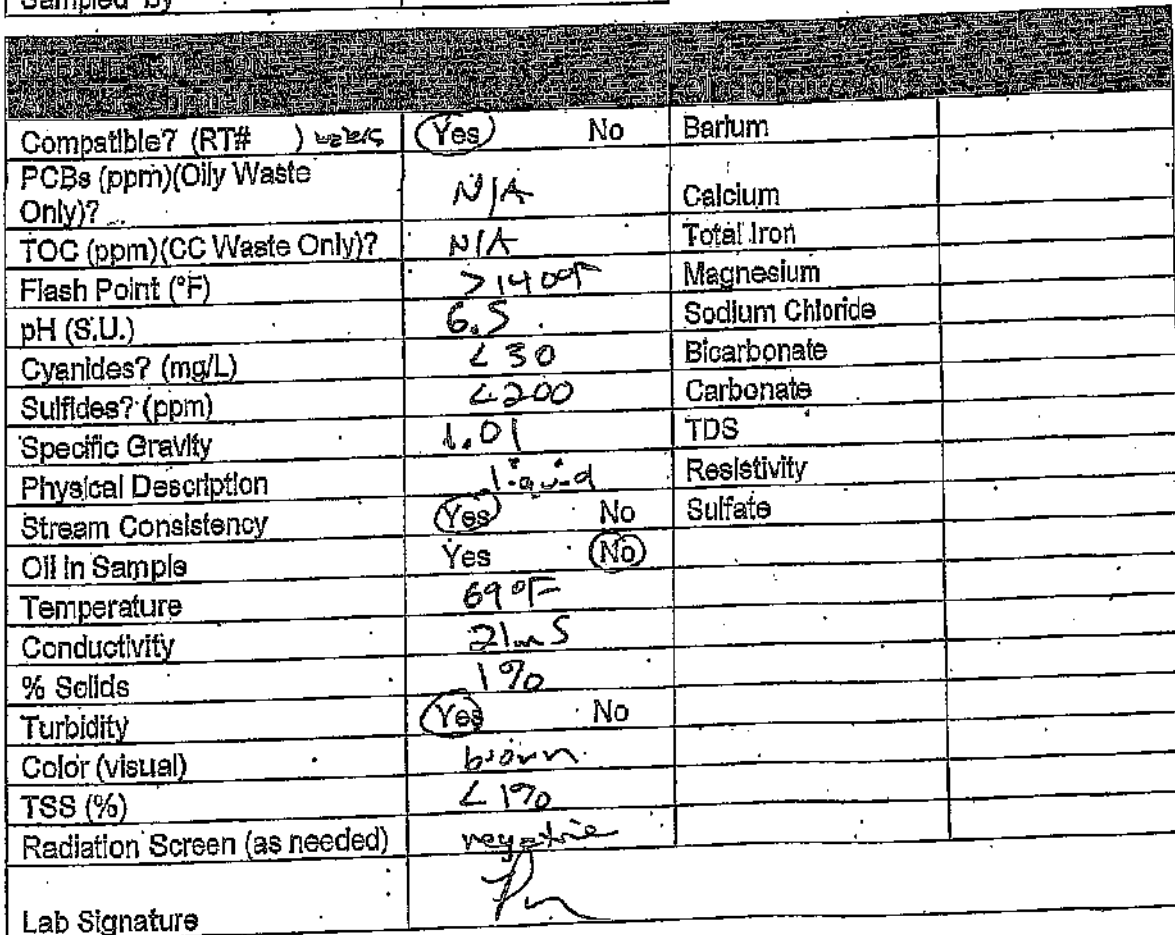 Sampled by
Compatible? (RT# ) Yes No Barium
PCBs (ppm)(Oily Waste
Only)? N/A Calcium
TOC (ppm)(CC Waste Only)? N/A Total Iron
Flash Point (°F) >140°F Magnesium
pH (S.U.) 6.5 Sodium Chloride
Cyanides? (mg/L) <30 Bicarbonate
Sulfides? (ppm) <200 Carbonate
Specific Gravity 1.01 TDS
Physical Description liquid Resistivity
Stream Consistency Yes No Sulfate
Oil in Sample Yes No
Temperature 69°F
Conductivity 21mS
% Solids 1%
Turbidity Yes No
Color (visual) brown
TSS (%) <1%
Radiation Screen (as needed) negative
Lab Signature